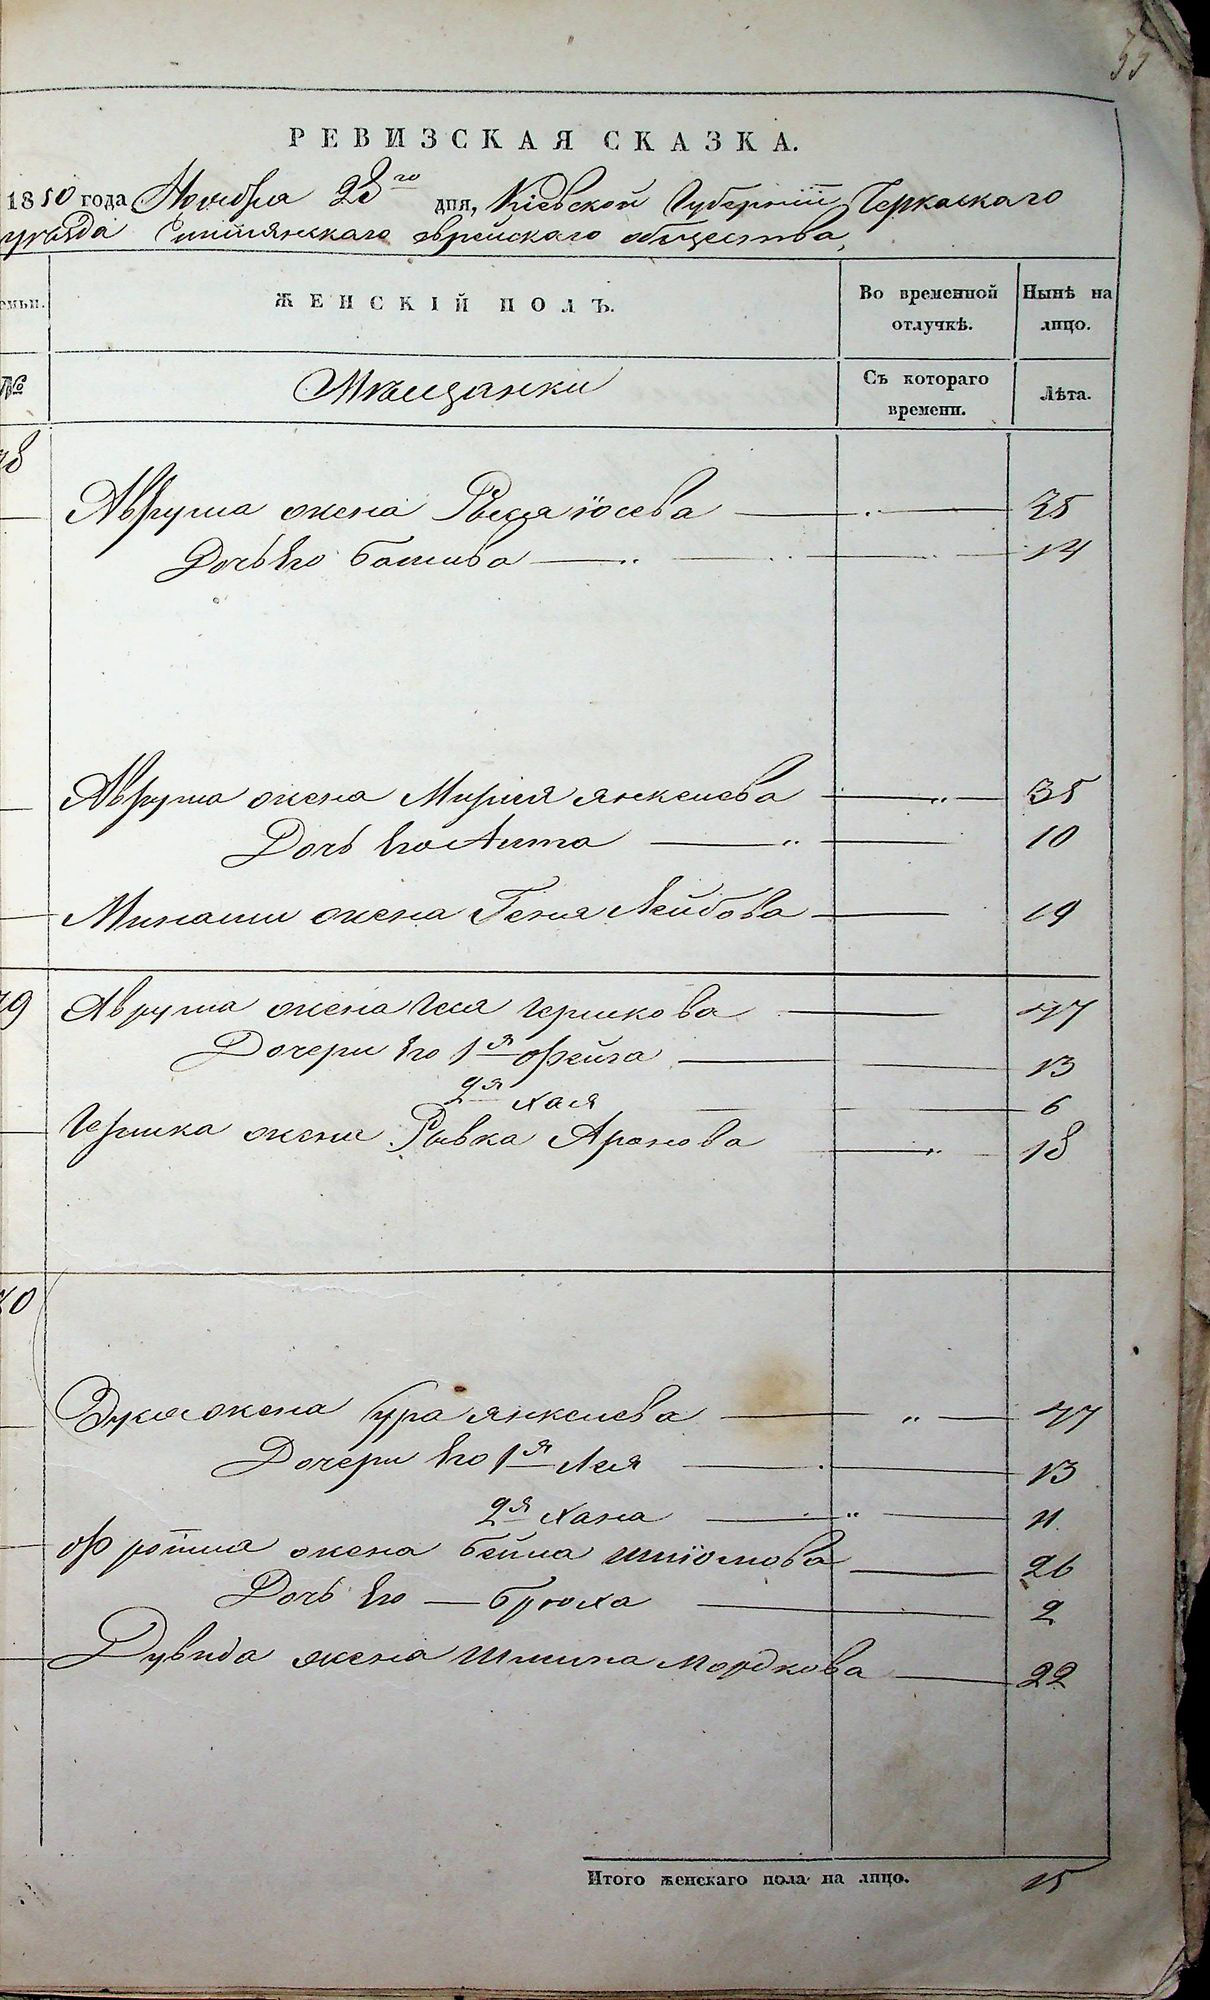 35
РЕВИЗСКАЯ СКАЗКА.
1850 года Ноября 28го дня, Кіевской Губерніи Черкаскаго
уѣзда еврейскаго общества,
ЖЕНСКІЙ ПОЛЪ. Во временной отлучкѣ. Нынѣ на лицо.
№ Мѣщанки Съ котораго времени. Лѣта.
78
Аврума жена Рыся Іосева 35
Дочь его Башива 14
Аврума жена Мирля Янкелева 35
Дочь его 10
Минаши жена Геня Лейбова 19
79 Аврума жена Гершкова 47
Дочери его 1я Фейга 13
2я Хая 6
Гершка жена Рывка Аронова 18
80
жена Сура Янкелева 47
Дочери его 1я Лея 13
2я Хана 11
Фроима жена Бейла Шліомова 26
Дочь его — Брюха 2
Дувида жена Мордкова 22
Итого женскаго пола на лицо. 15